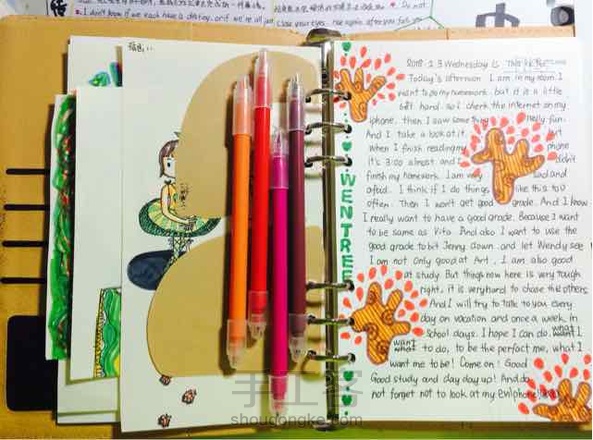 I don't know if we each have a destiny, or if we're all just
close your eyes.
2015-2.3 Wednesday
Today's afternoon I am in my room. I
want to do my homework. but it is a little
bit hard. so I cherk the internet on my
iphone. then I saw some thing really fun.
And I take a look at it. but
when I finish reading my phone
it's 3:00 almost and I didn't
finish my homework. I am very sad and
afraid. I think if I do things like this to
often. Then I won't get good grade. And I know
I really want to have a good grade. Because I want
to be same as Rita. And also I want to use the
good grade to bit Jenny down. and let Wendy see
I am not only good at Art, I am also good
at study. But things now here is very tough
right, it is very hard to chase the others
And I will try to talk to you every
day on vacation and once a week in
School days. I hope I can do what I
want to do, to be the perfect me, what I
want me to be! Come on! Good
Good study and day day up! And do
not forget not to look at my evil phone!
WENTREE
手工客
shougongke.com